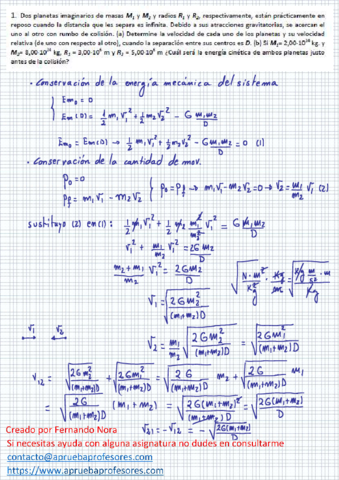 1. Dos planetas imaginarios de masas M₁ y M₂ y radios R₁ y R₂, respectivamente, están prácticamente en
reposo cuando la distancia que les separa es infinita. Debido a sus atracciones gravitatorias, se acercan el
uno al otro con rumbo de colisión. (a) Determina la velocidad de cada uno de los planetas y su velocidad
relativa (de uno con respecto al otro), cuando la separación entre sus centros es D. (b) Si M₁= 2,00·10²⁴ kg. y
M₂= 8,00·10²⁴ kg, R₁ = 3,00·10⁶ m y R₂ = 5,00·10⁶ m ¿Cuál será la energía cinética de ambos planetas justo
antes de la colisión?
· Conservación de la energía mecánica del sistema
Em₀ = 0
Em(D) = 1/2 m₁v₁² + 1/2 m₂v₂² - G m₁m₂/D
Em₀ = Em(D) → 1/2 m₁v₁² + 1/2 m₂v₂² - G m₁m₂/D = 0 (1)
· Conservación de la cantidad de mov.
p₀ = 0
p_f = m₁v₁ - m₂v₂ } p₀ = p_f → m₁v₁ - m₂v₂ = 0 → v₂ = m₁/m₂ v₁ (2)
sustituyo (2) en (1): 1/2 m₁v₁² + 1/2 m₂ m₁²/m₂² v₁² = G m₁m₂/D
v₁² + m₁/m₂ v₁² = 2Gm₂/D
m₂+m₁/m₂ v₁² = 2Gm₂/D
v₁ = √(2Gm₂²/(m₁+m₂)D)
v₂ = m₁/m₂ √(2Gm₂²/(m₁+m₂)D) = √(2Gm₁²/(m₁+m₂)D)
v₁₂ = √(2Gm₂²/(m₁+m₂)D) + √(2Gm₁²/(m₁+m₂)D) = √(2G/(m₁+m₂)D) m₂ + √(2G/(m₁+m₂)D) m₁
= √(2G/(m₁+m₂)D) (m₁+m₂) = √(2G(m₁+m₂)²/(m₁+m₂)D) = √(2G(m₁+m₂)/D)
v₂₁ = -v₁₂ = -√(2G(m₁+m₂)/D)
Creado por Fernando Nora
Si necesitas ayuda con alguna asignatura no dudes en consultarme
contacto@apruebaprofesores.com
https://www.apruebaprofesores.com